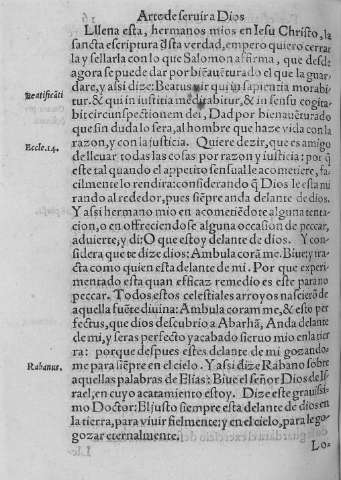 Arte de seruir a Dios
Lllena esta, hermanos mios en Iesu Christo, la
sancta escriptura d̃sta verdad, empero quiero cerrar
la y sellarla con lo que Salomon afirma, que desde
agora se puede dar por biẽauẽturado el que la guar
dare, y assi dize: Beatus vir qui in sapientia morabi
Beatificati
tur. & qui in iusticia meditabitur, & in sensu cogita
bit circunspectionem dei, Dad por bienauenturado
que sin duda lo sera, al hombre que haze vida con la
Eccle. 14.
razon, y con la justicia. Quiere dezir, que es amigo
de lleuar todas las cosas por razon y iusticia: por q̃
este tal quando el appetito sensual le acometiere, fa
cilmente lo rendira: considerando q̃ Dios le esta mi
rando al rededor, pues siẽpre anda delante de dios.
Y assi hermano mio en acometiẽdote alguna tenta
cion, o en offreciendose alguna occasion de peccar,
aduierte, y di: O que estoy delante de dios. Y con-
sidera que te dize dios: Ambula corã me. Biue y tra
cta como quien esta delante de mi. Por que experi-
mentado esta quan efficaz remedio es este para no
peccar. Todos estos celestiales arroyos nascierõ de
aquella fuẽte diuina: Ambula coram me, & esto per
fectus, que dios descubrio a Abarhã, Anda delante
de mi, y seras perfecto y acabado sieruo mio en la tier
ra: porque despues estes delante de mi gozando-
Rabanus.
me para siẽpre en el cielo. Y assi dize Rabano sobre
aquellas palabras de Elias: Biue el señor Dios de Is
rael, en cuyo acatamiento estoy. Dize este grauissi-
mo Doctor: El justo siempre esta delante de dios en
la tierra, para viuir fielmente: y en el cielo, para le go-
gozar eternalmente.
Lo-